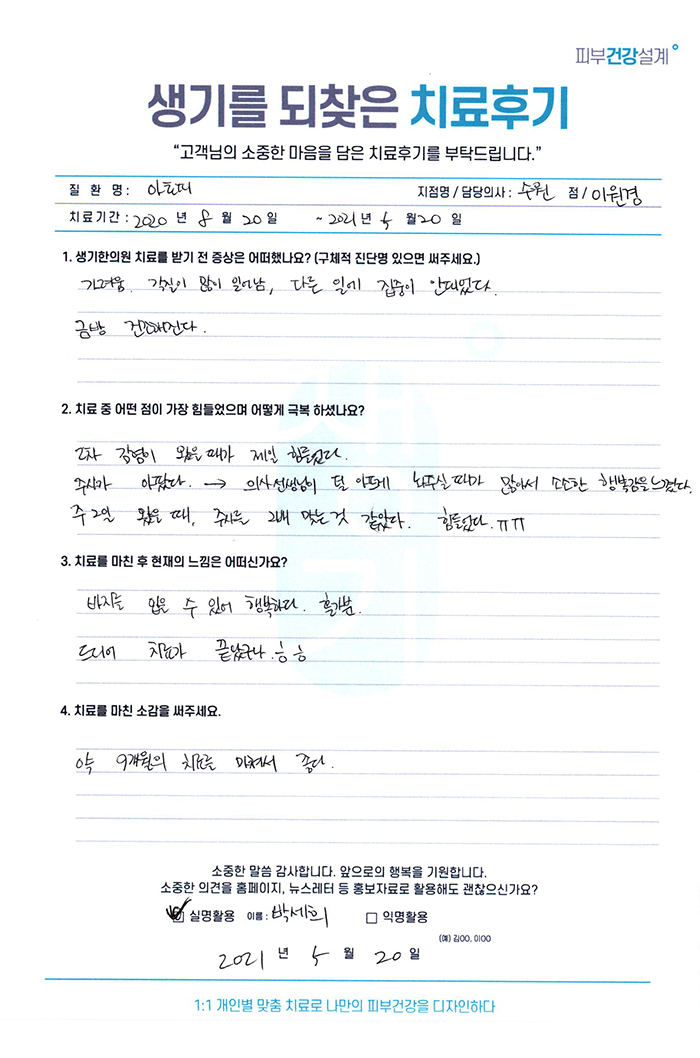 피부건강설계
생기를 되찾은 치료후기
“고객님의 소중한 마음을 담은 치료후기를 부탁드립니다.”
질 환 명 : 아토피 지점명 / 담당의사 : 수원 점 / 이원경
치료기간 : 2020 년 8 월 20 일 ~ 2021 년 5 월 20 일
1. 생기한의원 치료를 받기 전 증상은 어떠했나요? (구체적 진단명 있으면 써주세요.)
가려움. 각질이 많이 일어남, 다른 일에 집중이 안돼있다.
금방 건조해진다.
2. 치료 중 어떤 점이 가장 힘들었으며 어떻게 극복 하셨나요?
2차 감염이 왔을때가 제일 힘들었다.
주사가 아팠다. → 의사선생님이 덜 아프게 놔주실때가 많아서 소소한 행복감을 느꼈다.
주2일 왔을 때, 주사를 2배 맞는것 같았다. 힘들었다.ㅠㅠ
3. 치료를 마친 후 현재의 느낌은 어떠신가요?
바지를 입을 수 있어 행복하다. 홀가분.
드디어 치료가 끝났구나.
4. 치료를 마친 소감을 써주세요.
약 9개월의 치료를 마쳐서 좋다.
소중한 말씀 감사합니다. 앞으로의 행복을 기원합니다.
소중한 의견을 홈페이지, 뉴스레터 등 홍보자료로 활용해도 괜찮으신가요?
실명활용 이름 : 박세희 익명활용
(예) 김OO, 이OO
2021 년 5 월 20 일
1:1 개인별 맞춤 치료로 나만의 피부건강을 디자인하다